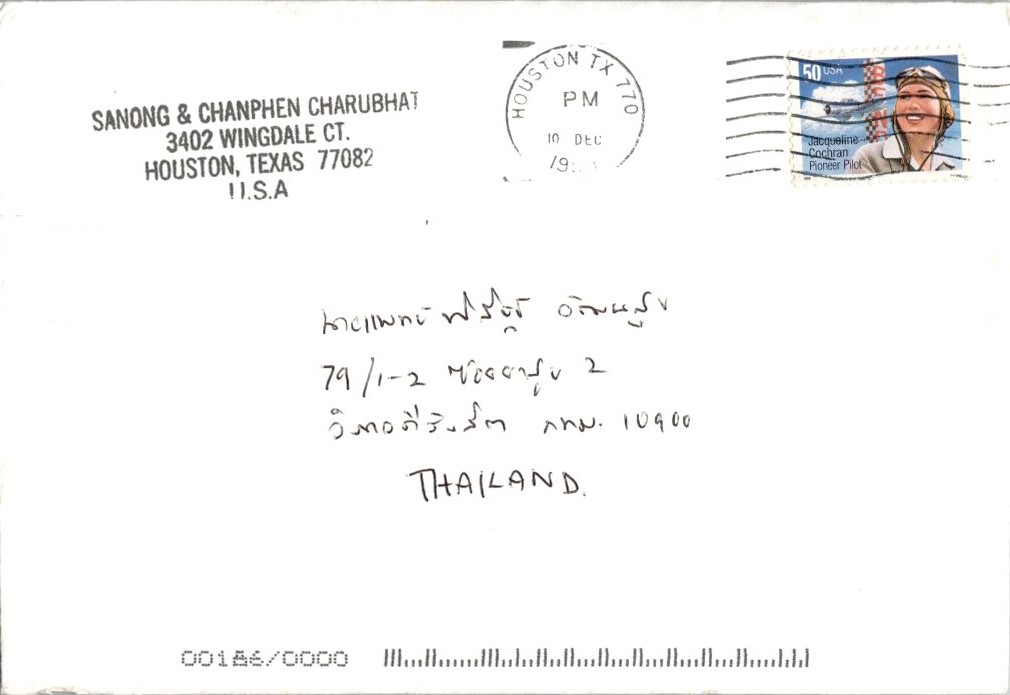 SANONG & CHANPHEN CHARUBHAT
3402 WINGDALE CT.
HOUSTON, TEXAS 77082
U.S.A
HOUSTON TX 770
PM
10 DEC
19
50 USA
Jacqueline
Cochran
Pioneer Pilot
นายแพทย์
79/1-2 2
วิภาวดีรังสิต กทม. 10900
THAILAND.
00186/0000